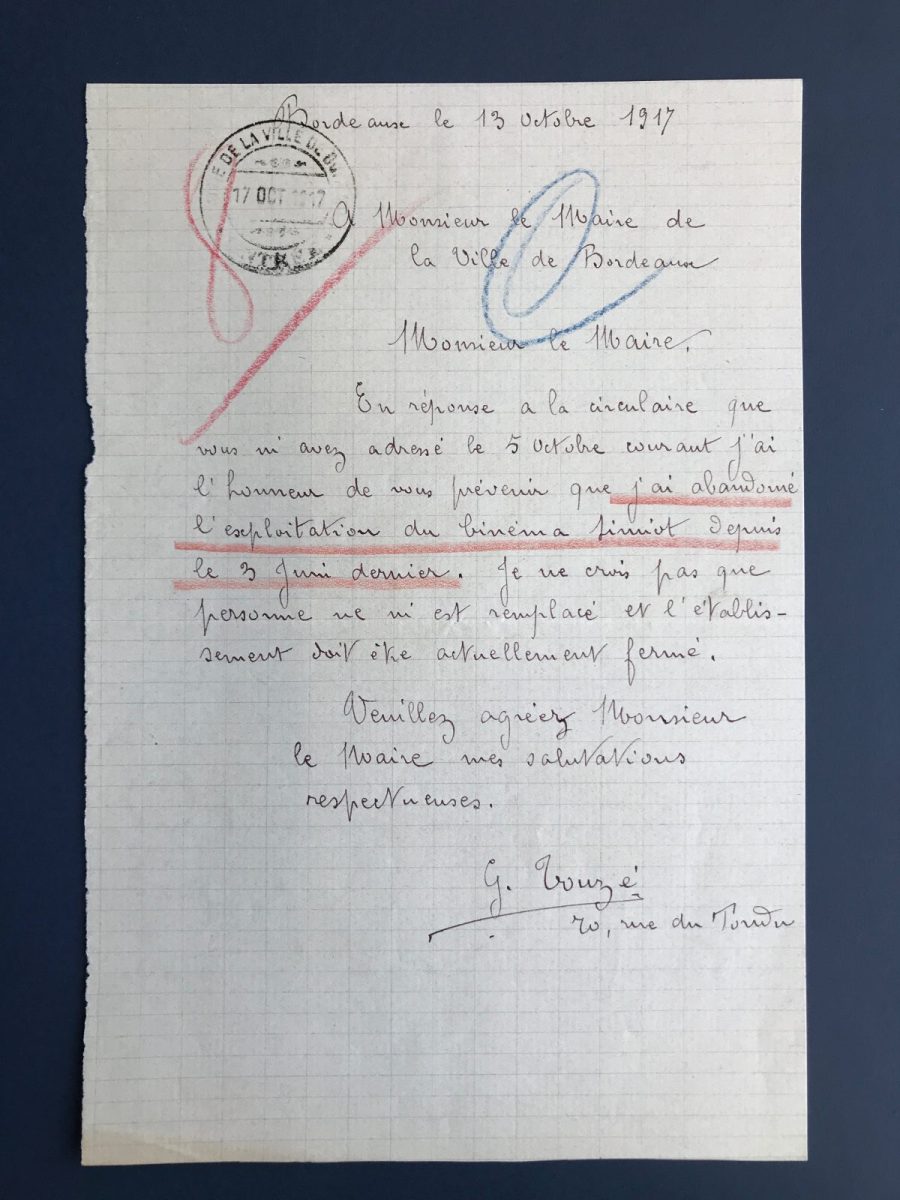 Bordeaux le 13 Octobre 1917
DE LA VILLE DE
17 OCT 1917
A Monsieur le Maire de
la Ville de Bordeaux
Monsieur le Maire,
En réponse a la circulaire que
vous m'avez adressé le 5 Octobre courant j'ai
l'honneur de vous prévenir que j'ai abandonné
l'exploitation du Cinéma Fimiot depuis
le 3 Juin dernier. Je ne crois pas que
personne ne m'est remplacé et l'établis-
sement doit être actuellement fermé.
Veuillez agréez Monsieur
le Maire mes salutations
respectueuses.
G. Touzé
70, rue du Tondu